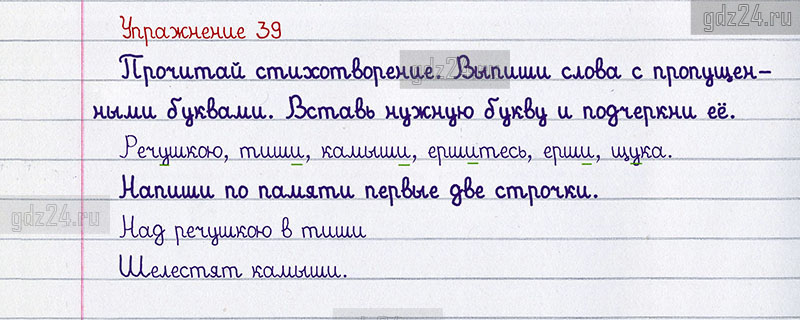 gdz24.ru
Упражнение 39
Прочитай стихотворение. Выпиши слова с пропущен-
gdz24.ru
ными буквами. Вставь нужную букву и подчеркни её.
Речушкою, тиши, камыши, ершитесь, ерши, щука.
Напиши по памяти первые две строчки.
gdz24.ru
Над речушкою в тиши
Шелестят камыши.